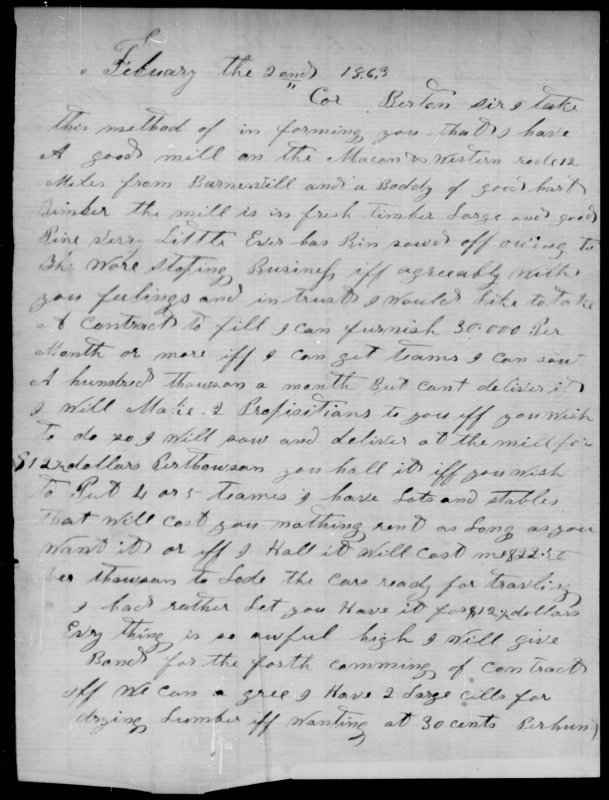 Febuary the 2 ond 1863
Cor Berton sir I take
this method of in forming you that I have
A good mill on the Macon & Western rode 12
Miles from Barnesvill and a Boddy of good hart
Timber the mill is in fresh timber Large and good
Pine verry Little Ever has Bin sawed off owing to
The Wore stoping Business iff agreeably with
you feelings and in trust I Would Like to take
A Contract to fill I can furnish 30.000 Per
Month or more iff I can get teams I can saw
A hundred thowson a month But cant deliver it
I Will Make 2 Propisitians to you iff you Wish
to do so I Will saw and deliver at the mill for
$12½ dollars Perthowson you hall it iff you wish
to Put 4 or 5 teames I have Lots and stables
that Will cost you nothing rent as Long as you
Want it or iff I Hall it Will cost me $22.50
Per thowson to Lode the cars ready for travling
I had rather Let you Have it for $12½ dollars
Evry thing is so awful high I Will give
Band for the forth comming of contract
iff We can a gree I Have 2 Large cills for
drying Lumber iff Wanting at 30 cents Perhun